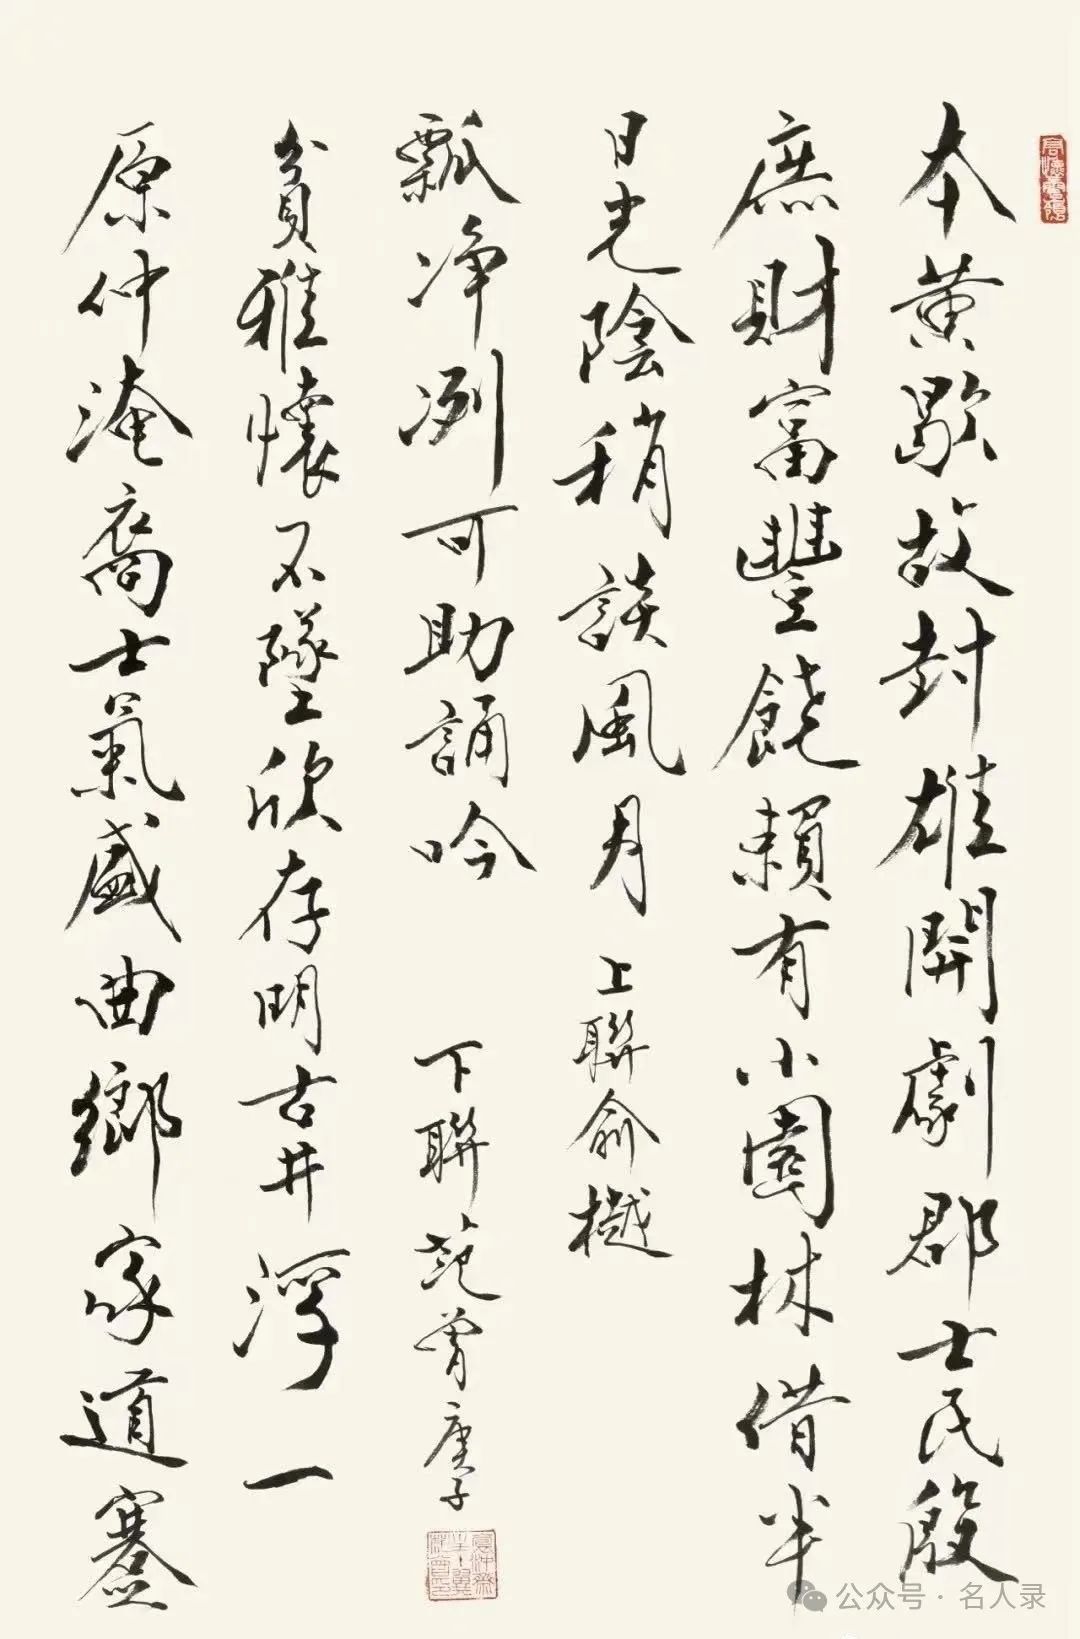 本黄歇故封雄開劇郡士民殷
庶財富豐饒賴有小園林借半
日光陰稍談風月 上聯俞樾
原仲淹裔士氣盛曲鄉家道蹇
貧雅懷不墜欣存明古井浮一
瓢净冽可助誦吟 下聯范曾庚子
公众号·名人录